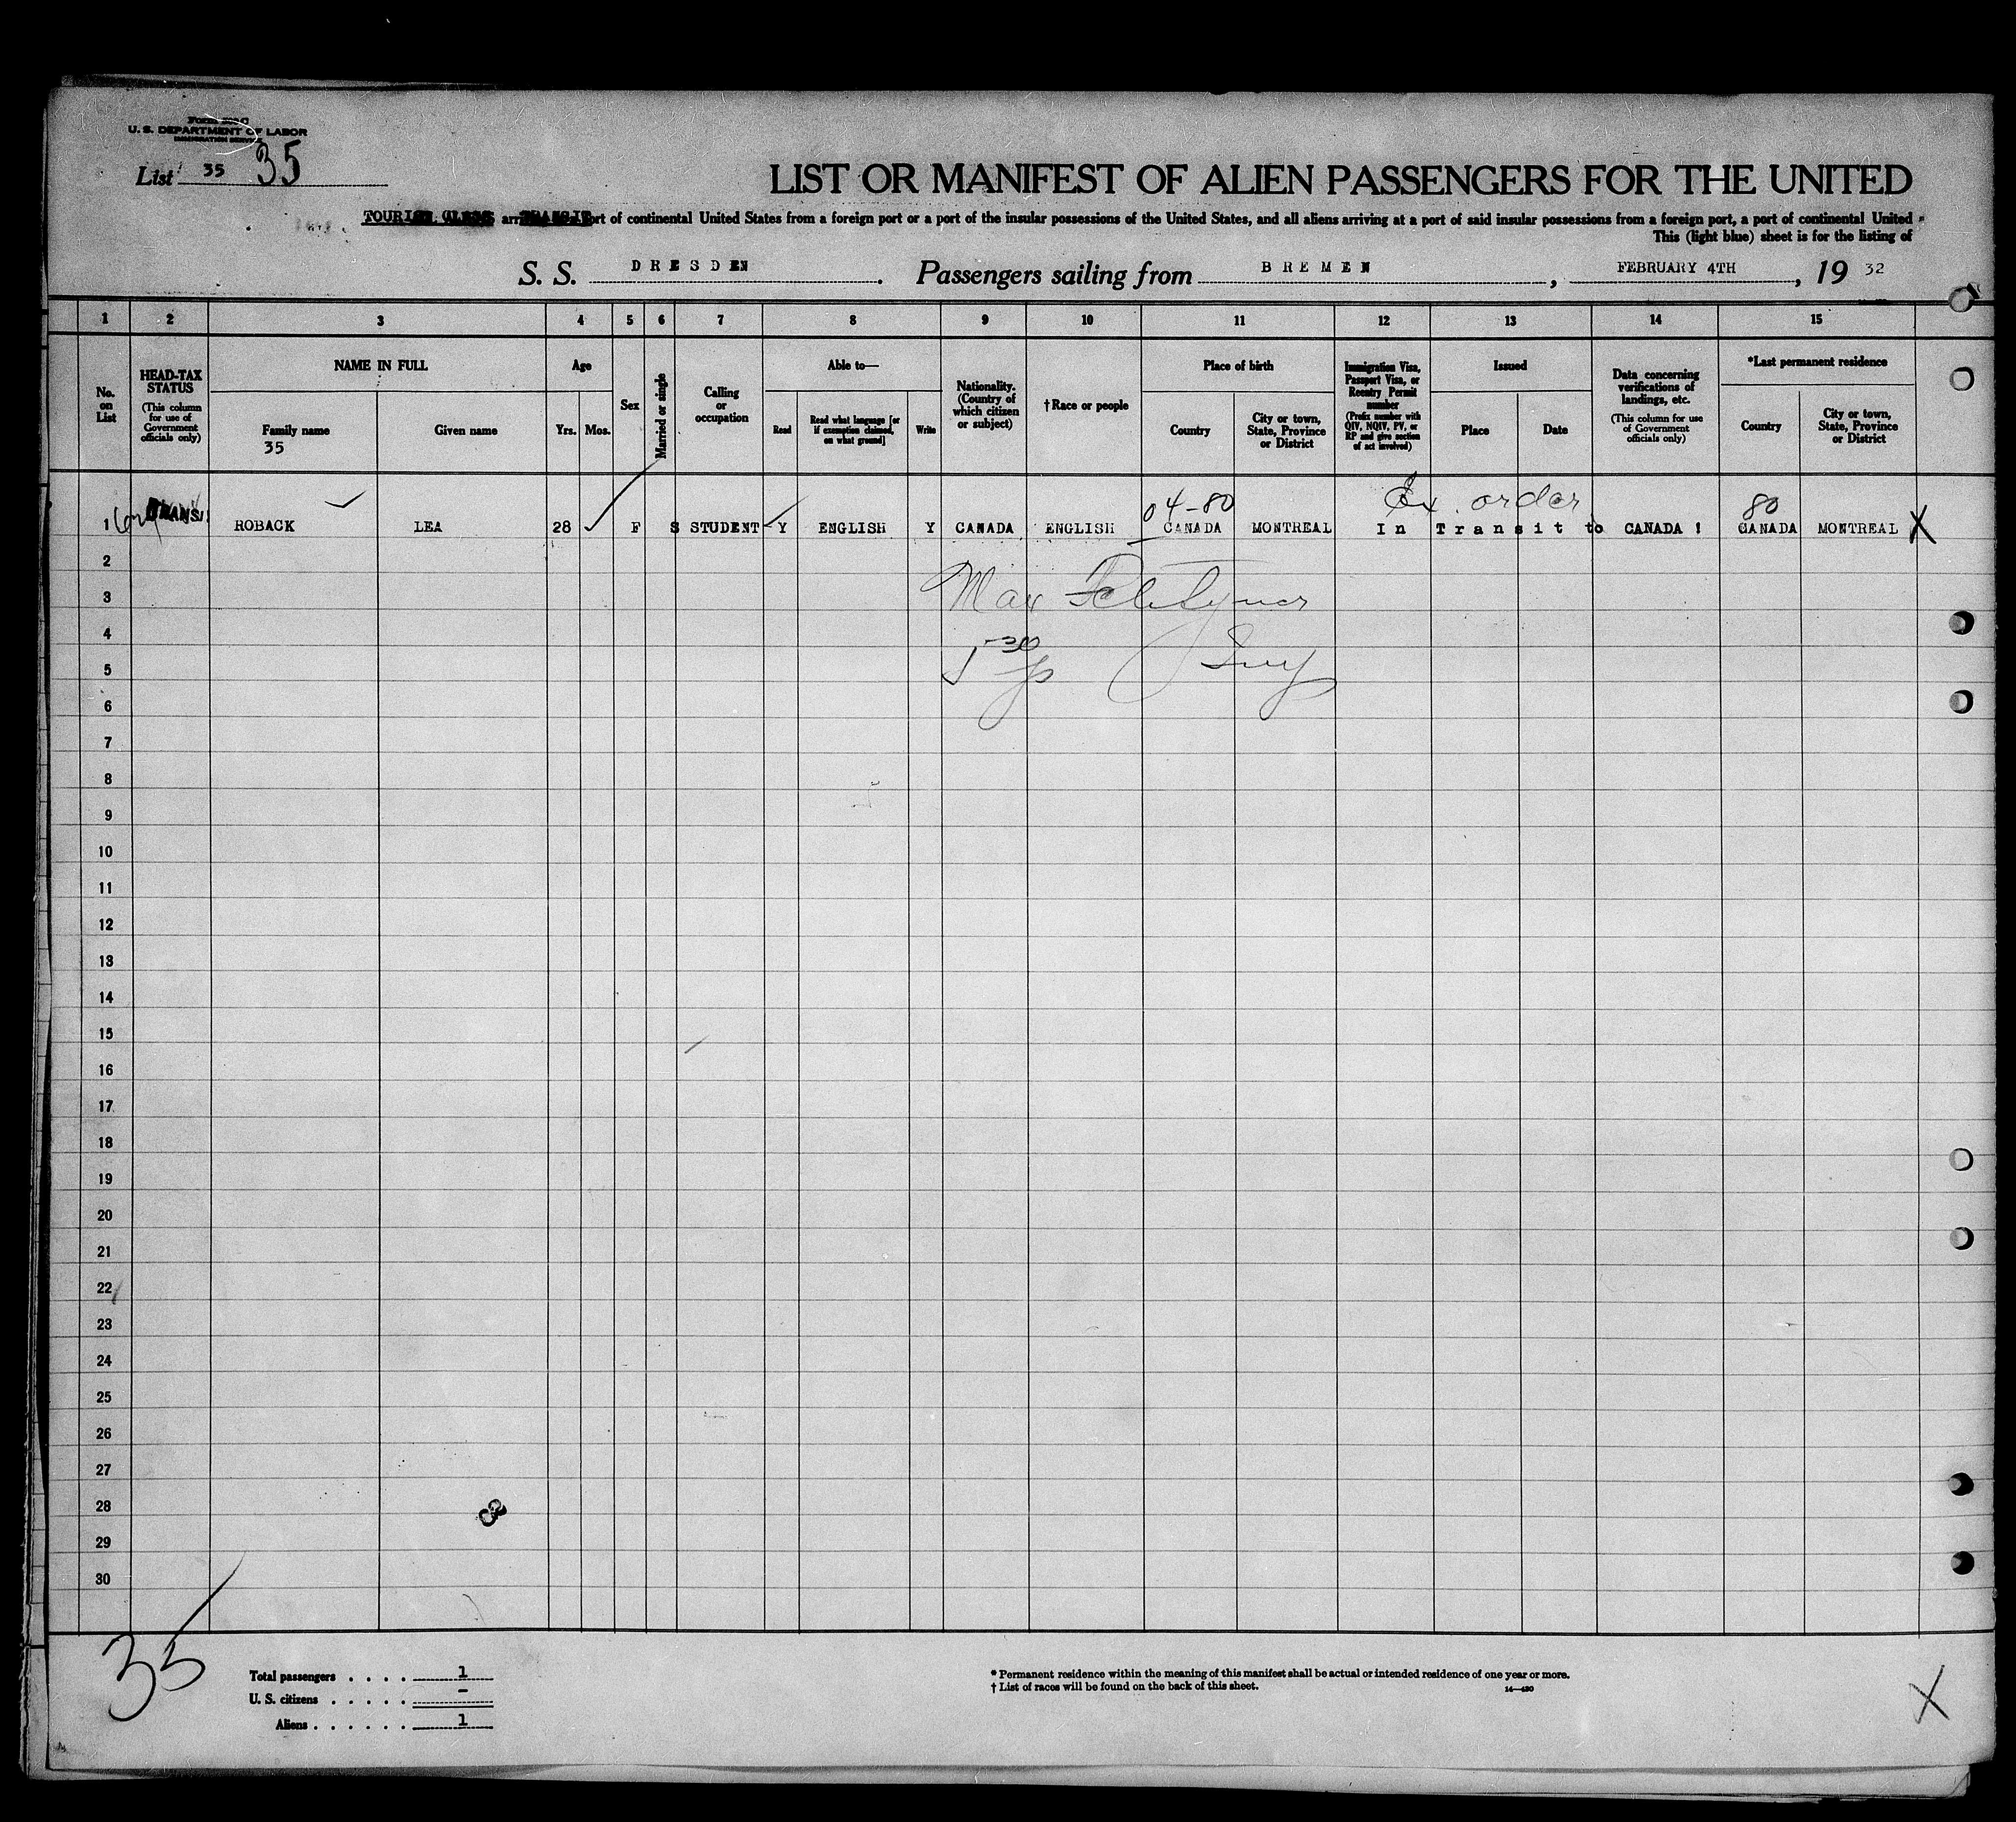 U. S. DEPARTMENT OF LABOR
IMMIGRATION SERVICE
List 35 35
LIST OR MANIFEST OF ALIEN PASSENGERS FOR THE UNITED
port of continental United States from a foreign port or a port of the insular possessions of the United States, and all aliens arriving at a port of said insular possessions from a foreign port, a port of continental United
This (light blue) sheet is for the listing of
S. S. DRESDEN. Passengers sailing from BREMEN, FEBRUARY 4TH, 19 32
1 2 3 4 5 6 7 8 9 10 11 12 13 14 15
No. on List
HEAD-TAX STATUS
(This column for use of Government officials only)
NAME IN FULL
Family name
35
Given name
Age
Yrs. Mos.
Sex
Married or single
Calling or occupation
Able to—
Read
Read what language [or if exemption claimed, on what ground]
Write
Nationality. (Country of which citizen or subject)
† Race or people
Place of birth
Country
City or town, State, Province or District
Immigration Visa, Passport Visa, or Reentry Permit number
(Prefix number with QIV, NQIV, PV, or RP and give section of act involved)
Issued
Place
Date
Data concerning verifications of landings, etc.
(This column for use of Government officials only)
*Last permanent residence
Country
City or town, State, Province or District
04-80 Ex. order 80
1 ROBACK LEA 28 F S STUDENT Y ENGLISH Y CANADA ENGLISH CANADA MONTREAL In Transit to CANADA ! CANADA MONTREAL X
2
3 Max
4
5
6
7
8
9
10
11
12
13
14
15
16
17
18
19
20
21
22
23
24
25
26
27
28
29
30
35
Total passengers . . . . 1
U. S. citizens . . . . . -
Aliens . . . . . . 1
* Permanent residence within the meaning of this manifest shall be actual or intended residence of one year or more.
† List of races will be found on the back of this sheet.
14—430
X